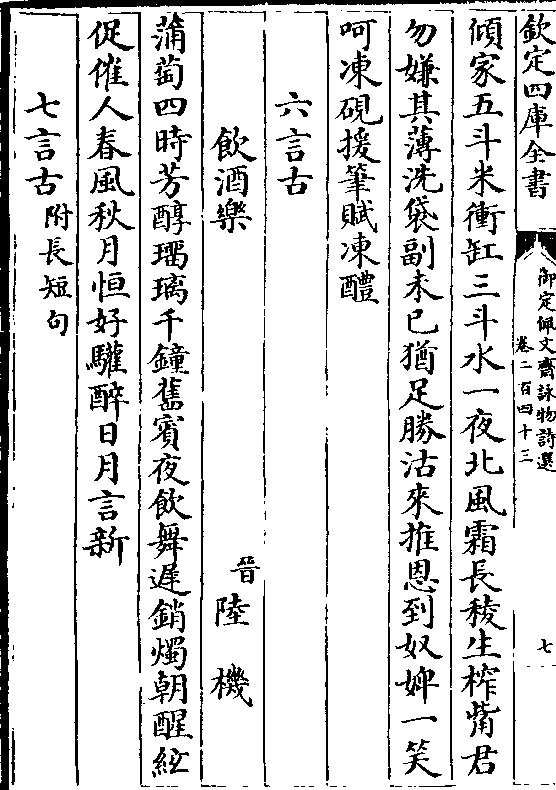 欽定四庫全書
御定佩文齋詠物詩選
卷二百四十三
七
傾家五斗米衝缸三斗水一夜北風霜長稜生榨觜君
勿嫌其薄洗袋副未已猶足勝沽來推恩到奴婢一笑
呵凍硯援筆賦凍醴
六言古
飲酒樂
晉陸機
蒲萄四時芳醇瑠璃千鐘舊賓夜飲舞遲銷燭朝醒絃
促催人春風秋月恒好驩醉日月言新
七言古附長短句